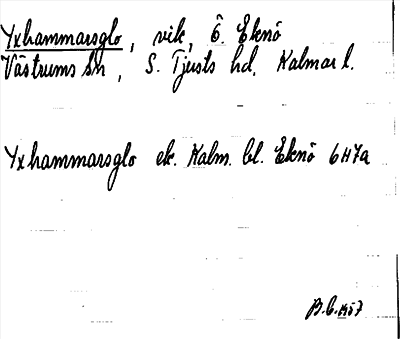 Yxhammarsglo, vik, Ö. Eknö
Västrums sn, S. Tjusts hd, Kalmar l.
Yxhammarsglo ek. Kalm. bl. Eknö 6H7a